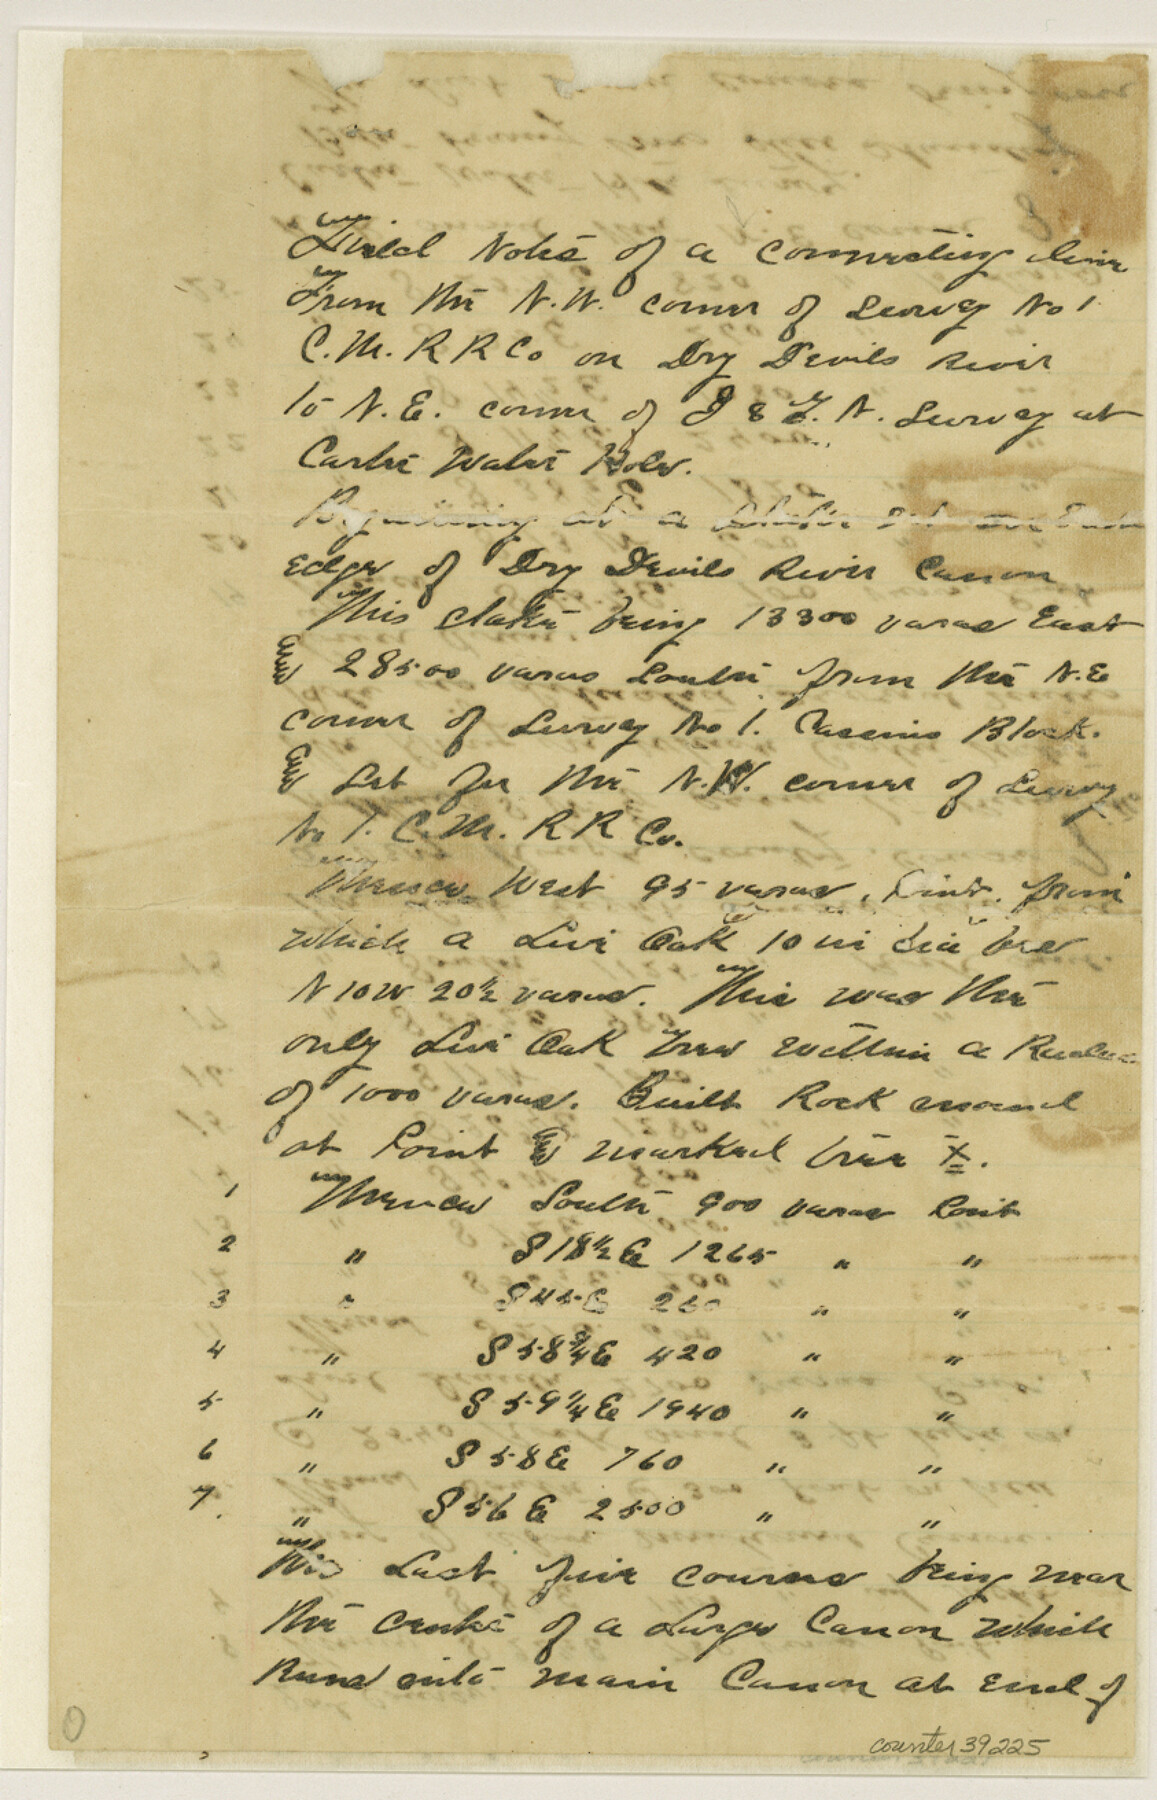 Field Notes of a connecting line
From the N.W. corner of Survey No 1
C. M. R R Co on Dry Devils River
to N. E. corner of I & G. N. Survey at
Water Hole.
Beginning at a stake set on East
edge of Dry Devils River Canon
This stake being 13300 varas East
& 28500 varas South from the N.E
corner of Survey No 1. Block.
& Set for the N.W. corner of Survey
No 1. C. M. R R Co.
Thence West 95 varas, Point. from
which a Live Oak 10 in dia brs
N 10 W 20 1/2 varas. This was the
only Live Oak Tree within a Radius
of 1000 varas. Built Rock mound
at Point & marked tree X.
1 Thence South 900 varas Point
2 " S 18 1/2 E 1265 " "
3 " S 45 E 250 " "
4 " S 58 3/4 E 420 " "
5 " S 59 1/4 E 1940 " "
6 " S 58 E 760 " "
7. " S 56 E 2500 " "
This Last five courses being near
the center of a Large Canon which
Runs into main Canon at End of
0
counter 39225